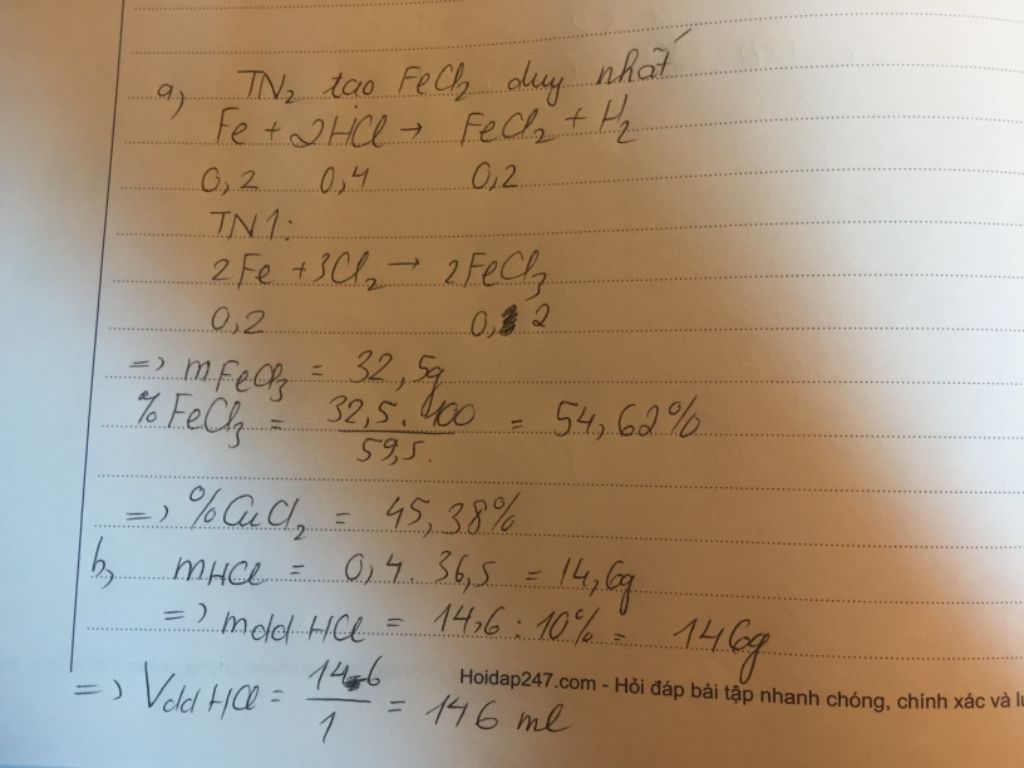 a) TN₂ tạo FeCl₂ duy nhất
Fe + 2HCl → FeCl₂ + H₂
0,2 0,4 0,2
TN1:
2Fe + 3Cl₂ → 2FeCl₃
0,2 0,2
=> mFeCl₃ = 32,5g
%FeCl₃ = 32,5.100 / 59,5. = 54,62%
=> %CuCl₂ = 45,38%
b, mHCl = 0,4.36,5 = 14,6g
=> mdd HCl = 14,6 : 10% = 146g
=> Vdd HCl = 146 / 1 = 146 ml
Hoidap247.com - Hỏi đáp bài tập nhanh chóng, chính xác và